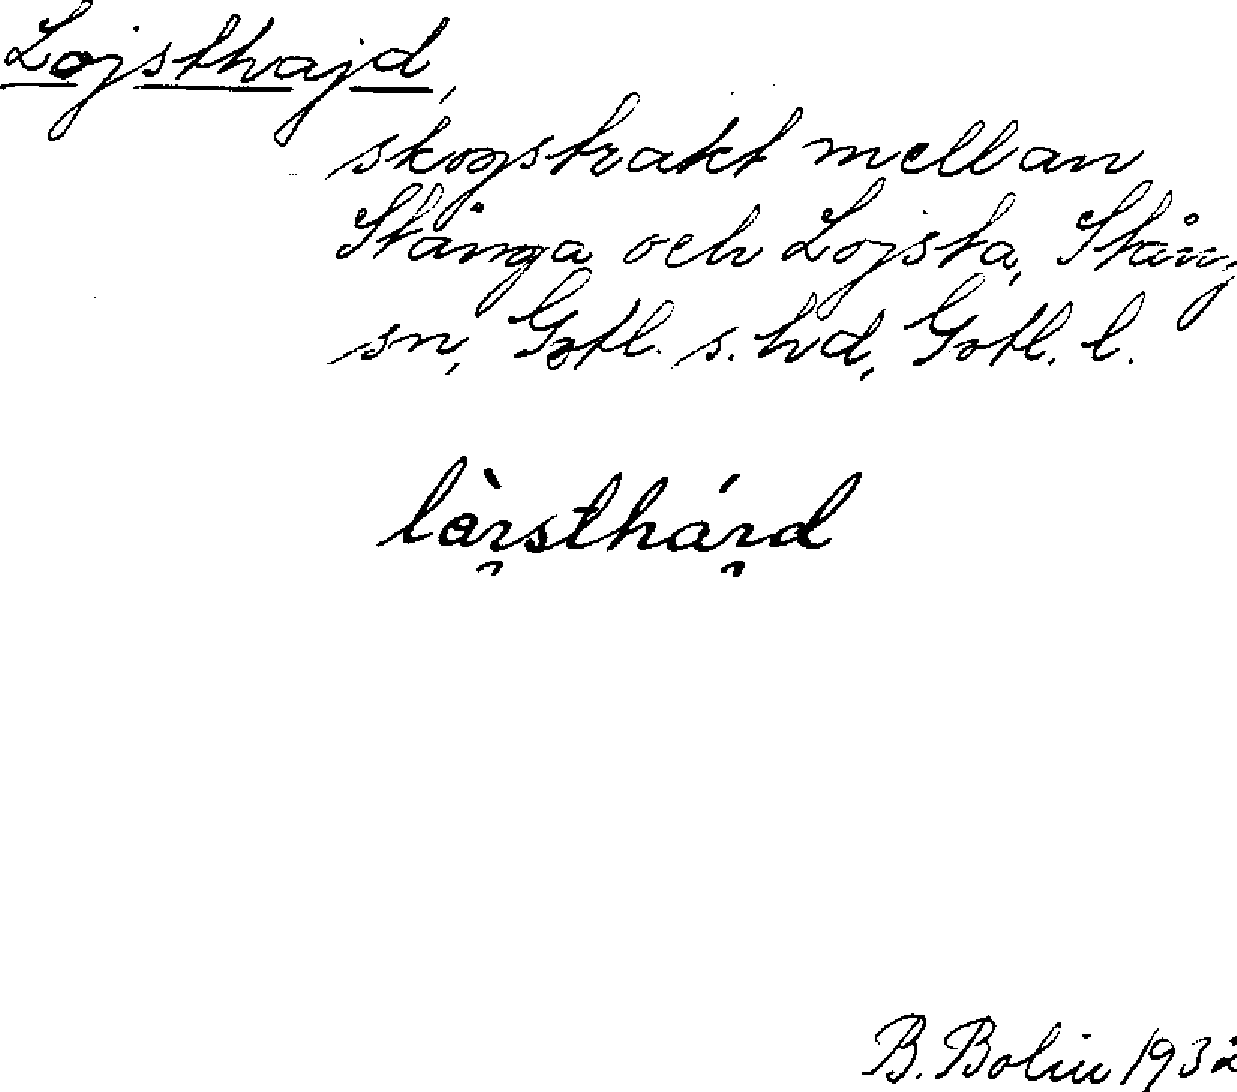 Lojsthajd,
skogstrakt mellan
Stånga och Lojsta, Stång
sn, Gotl. s. hd, Gotl. l.
B. Bolin 1932